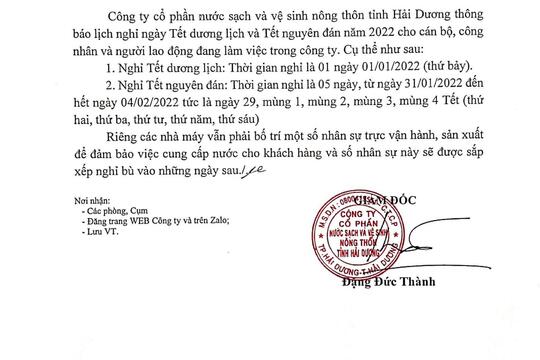 Công ty cổ phần nước sạch và vệ sinh nông thôn tỉnh Hải Dương thông
báo lịch nghỉ ngày Tết dương lịch và Tết nguyên đán năm 2022 cho cán bộ, công
nhân và người lao động đang làm việc trong công ty. Cụ thể như sau:
1. Nghỉ Tết dương lịch: Thời gian nghỉ là 01 ngày 01/01/2022 (thứ bảy).
2. Nghỉ Tết nguyên đán: Thời gian nghỉ là 05 ngày, từ ngày 31/01/2022 đến
hết ngày 04/02/2022 tức là ngày 29, mùng 1, mùng 2, mùng 3, mùng 4 Tết (thứ
hai, thứ ba, thứ tư, thứ năm, thứ sáu)
Riêng các nhà máy vẫn phải bố trí một số nhân sự trực vận hành, sản xuất
để đảm bảo việc cung cấp nước cho khách hàng và số nhân sự này sẽ được sắp
xếp nghỉ bù vào những ngày sau./.
Nơi nhận:
- Các phòng, Cụm
- Đăng trang WEB Công ty và trên Zalo;
- Lưu VT.
GIÁM ĐỐC
CÔNG TY
CỔ PHẦN
NƯỚC SẠCH VÀ VỆ SINH
NÔNG THÔN
TỈNH HẢI DƯƠNG
TP.HẢI DƯƠNG-T.HẢI DƯƠNG
Đặng Đức Thành